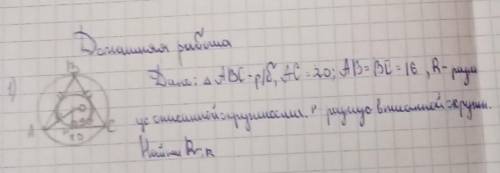 Домашняя работа
1)
B
Дано: △ABC - р/б, AC = 20; AB = BC = 16, R - ради
ус описанной окружности. r радиус вписанной окружн.
A C
20
Найти R, r